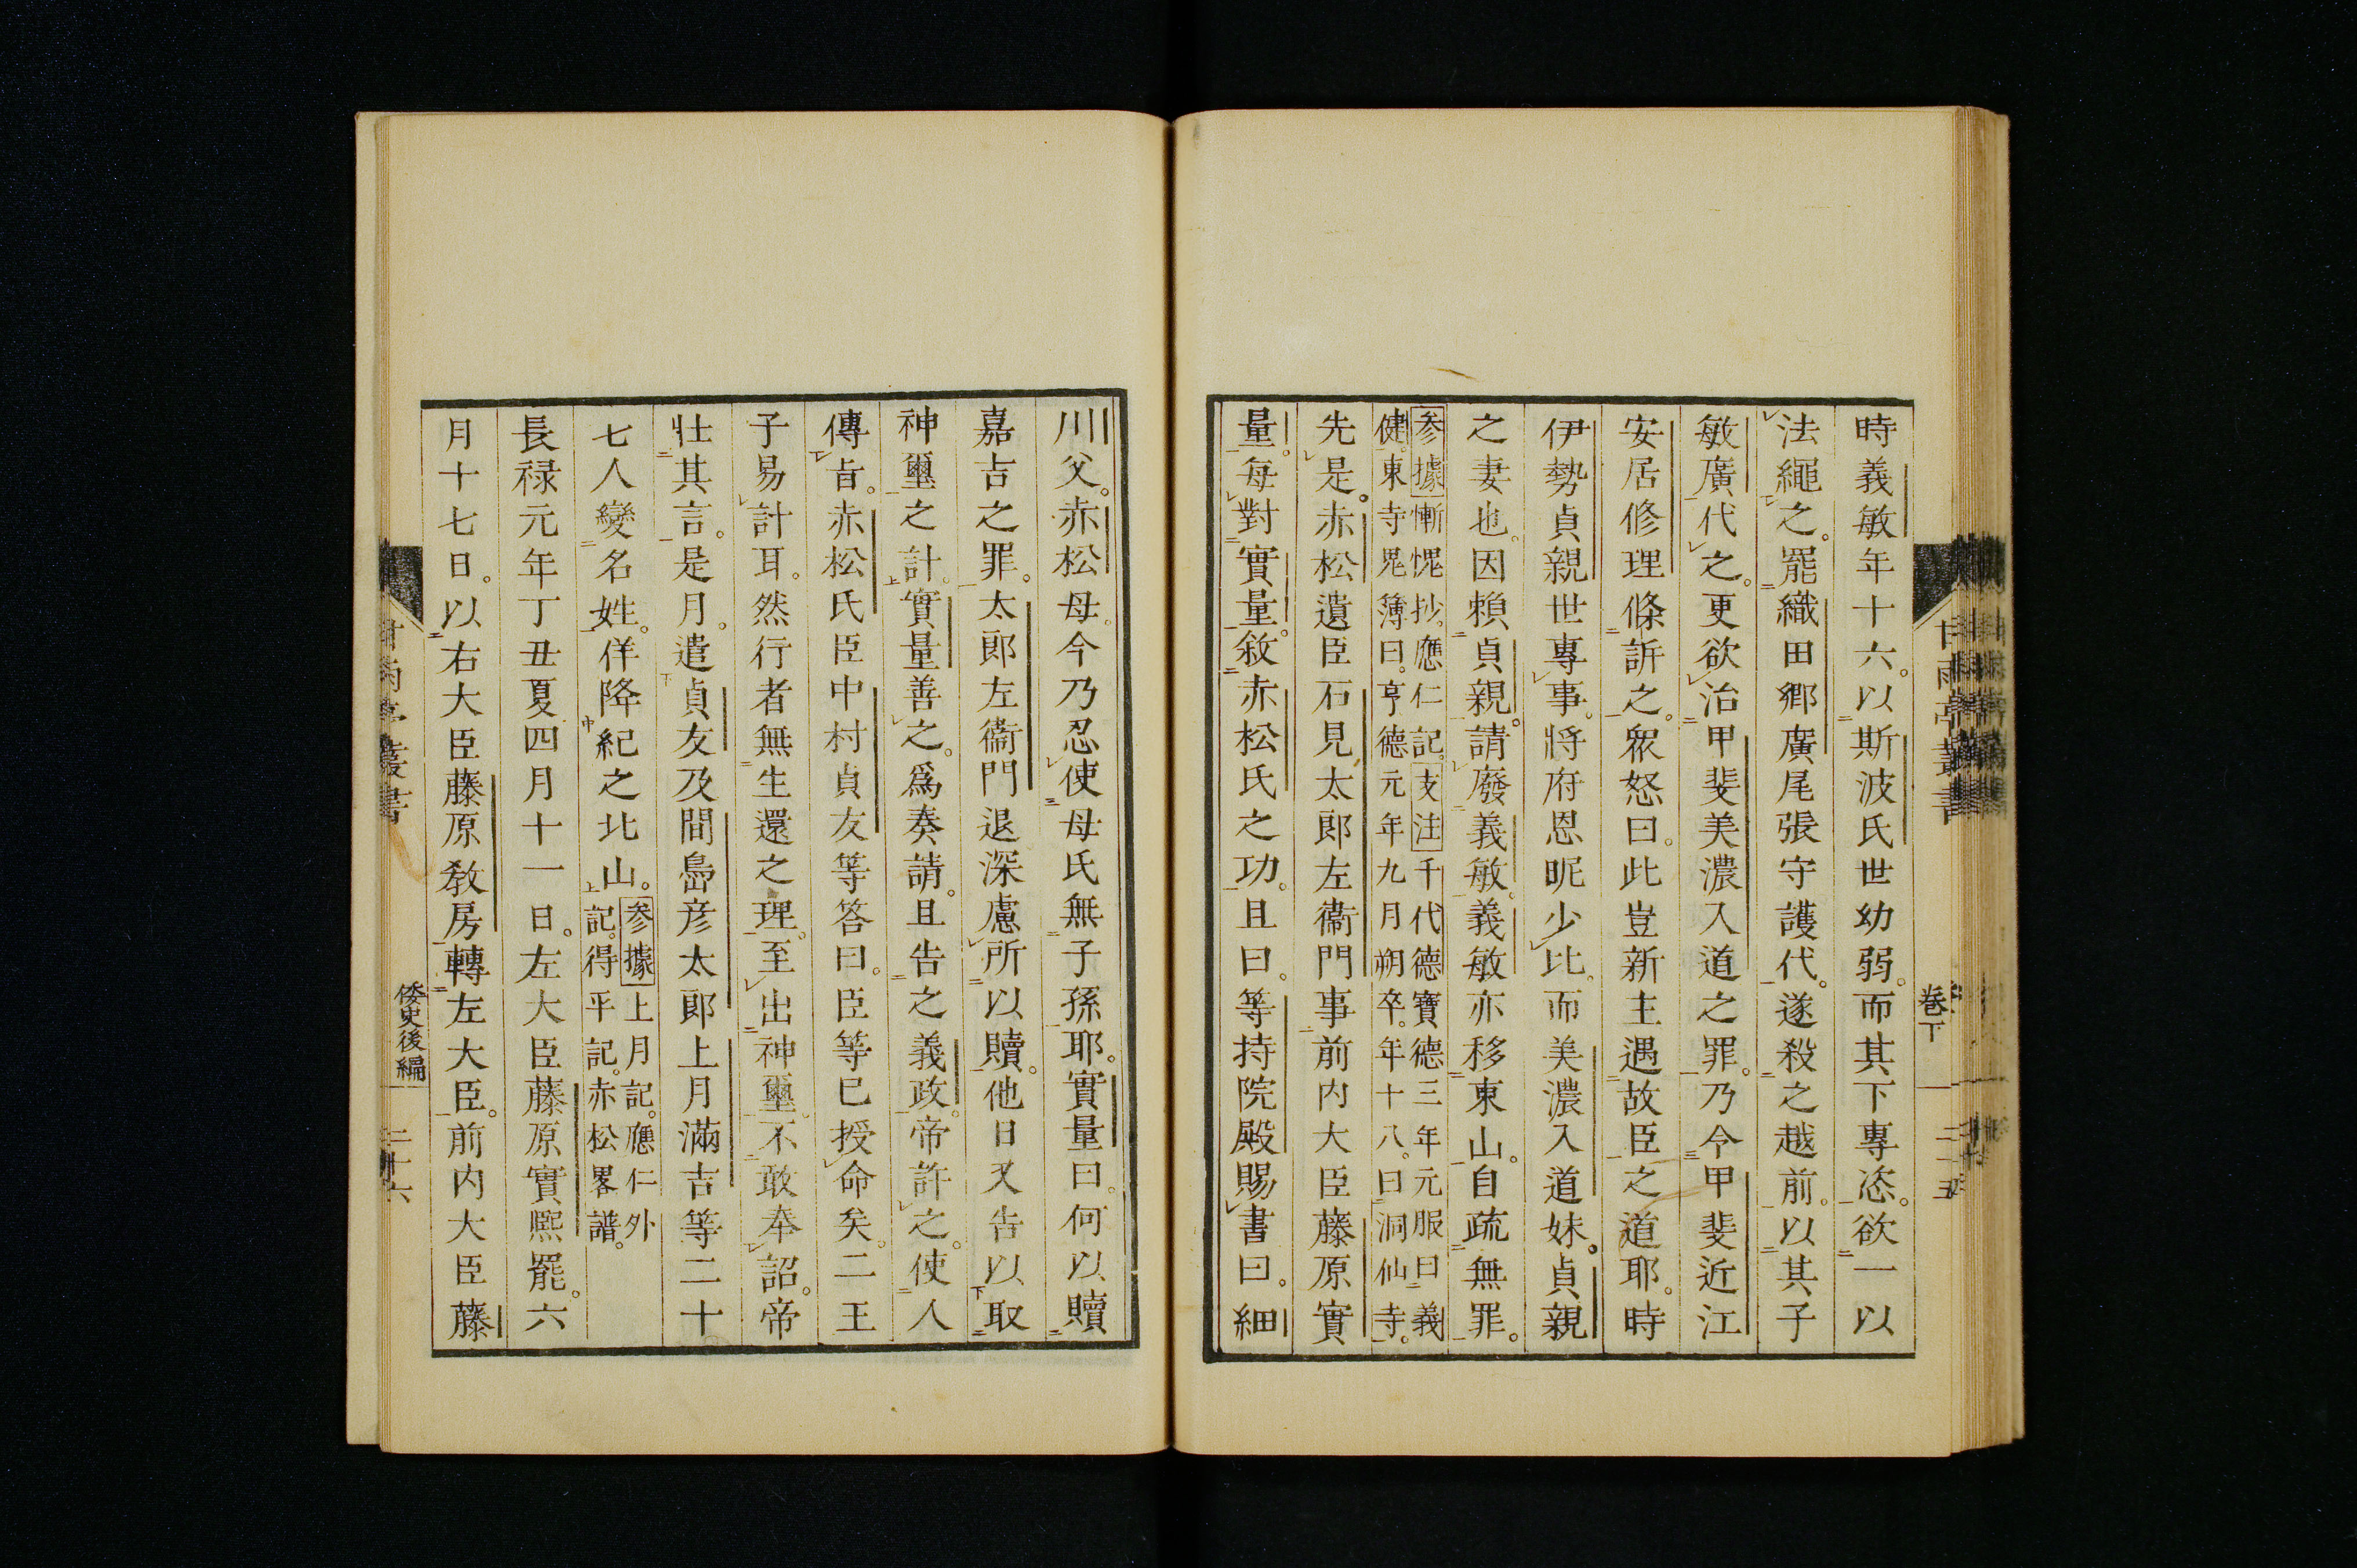 時義敏年十六。以斯波氏世幼弱。而其下專恣。欲一以
法繩之。罷織田郷廣尾張守護代。遂殺之越前。以其子
敏廣代之。更欲治甲斐美濃入道之罪。乃令甲斐近江
安居修理條訴之。衆怒曰。此豈新主遇故臣之道耶。時
伊勢貞親世專事。將府恩昵少比。而美濃入道妹。貞親
之妻也。因頼貞親。請廢義敏。義敏亦移東山。自疏無罪。
参據慚愧抄。應仁記。支注千代德寶德三年元服曰義
健。東寺晃簿曰。亨德元年九月朔卒。年十八。曰洞仙寺。
先是。赤松遺臣石見太郎左衞門事前内大臣藤原實
量。每對實量。敘赤松氏之功。且曰。等持院殿賜書曰。細
川父。赤松母。今乃忍使母氏無子孫耶。實量曰。何以贖
嘉吉之罪。太郎左衞門退深慮所以贖。他日又告以取
神璽之計。實量善之。爲奏請。且告之義政。帝許之。使人
傳旨。赤松氏臣中村貞友等答曰。臣等已授命矣。二王
子易計耳。然行者無生還之理。至出神璽。不敢奉詔。帝
壯其言。是月。遣貞友及間嶌彦太郎上月滿吉等二十
七人變名姓。佯降紀之北山。参據上月記。應仁外
記。得平記。赤松畧譜。
長禄元年丁丑夏四月十一日。左大臣藤原實熈罷。六
月十七日。以右大臣藤原教房轉左大臣。前内大臣藤
甘雨亭叢書
卷下
倭史後編
二十六